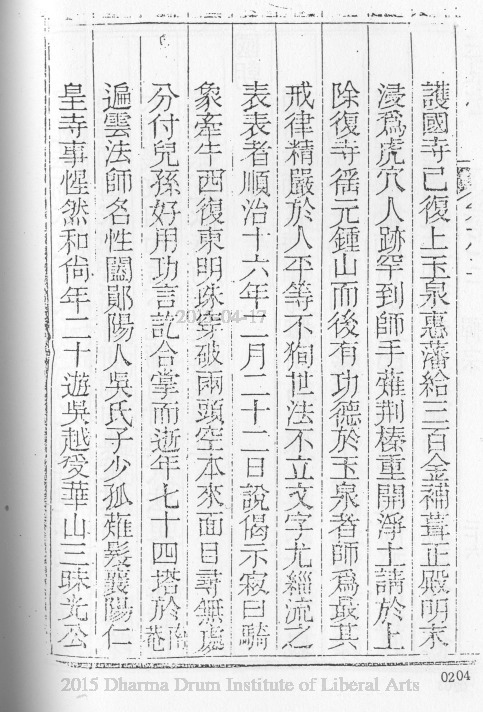 護國寺已復上玉泉惠藩給三百金補葺正殿明末
浸爲虎穴人跡罕到師手薙荆榛重開淨土請於上
除復寺徭元鍾山而後有功德於玉泉者師爲最其
戒律精嚴於人平等不狥世法不立文字尤緇流之
表表者順治十六年二月二十二日說偈示寂曰騎
象牽牛西復東明珠穿破兩頭空本來面目尋無處
分付兒孫好用功言訖合掌而逝年七十四塔於
菴
遍雲法師名性闊鄖陽人吳氏子少孤薙髮襄陽仁
皇寺事惺然和尙年二十遊吳越受華山三昧光公
0204
2015 Dharma Drum Institute of Liberal Arts